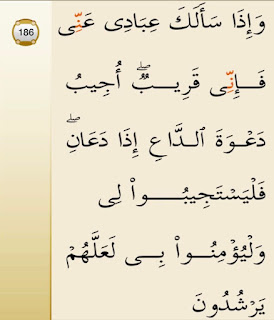 186
وَإِذَا سَأَلَكَ عِبَادِى عَنِّى
فَإِنِّى قَرِيبٌ ۖ أُجِيبُ
دَعْوَةَ ٱلدَّاعِ إِذَا دَعَانِ ۖ
فَلْيَسْتَجِيبُوا۟ لِى
وَلْيُؤْمِنُوا۟ بِى لَعَلَّهُمْ
يَرْشُدُونَ